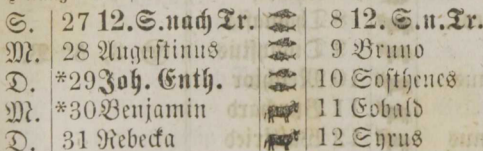 S. 27 12. S. nach Tr. 8 12. S. n. Tr.
M. 28 Augustinus 9 Bruno
D. *29 Joh. Enth. 10 Sosthenes
M. *30 Benjamin 11 Eobald
D. 31 Rebecka 12 Syrus